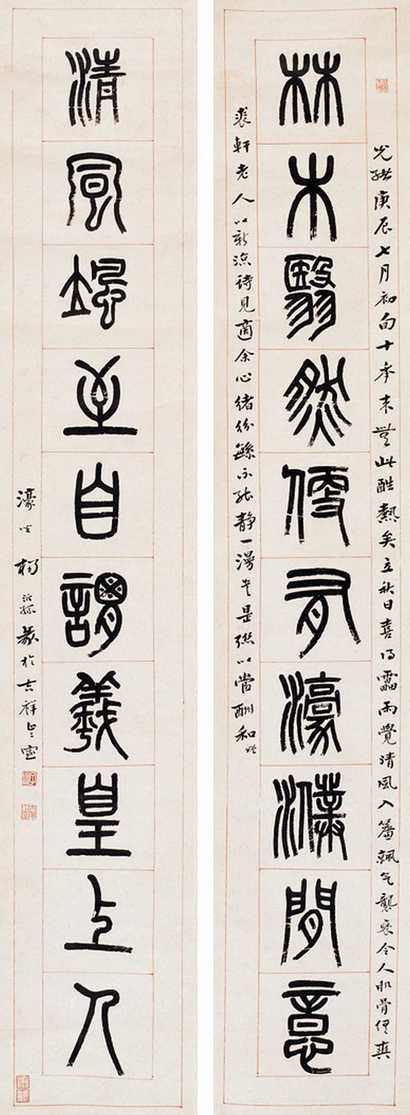 光緒庚辰七月初旬十年來無此酷熱矣立秋日喜得靁雨覺清風入簾颯气襲衷令人肌骨俱爽
林木翳然便有濠濮間意
裘軒老人以新涼詩見商余心緒紛繇不能静一漫書是聯以當酬和
清風颯至自謂羲皇上人
濠叟楊沂孫於吉祥止止室